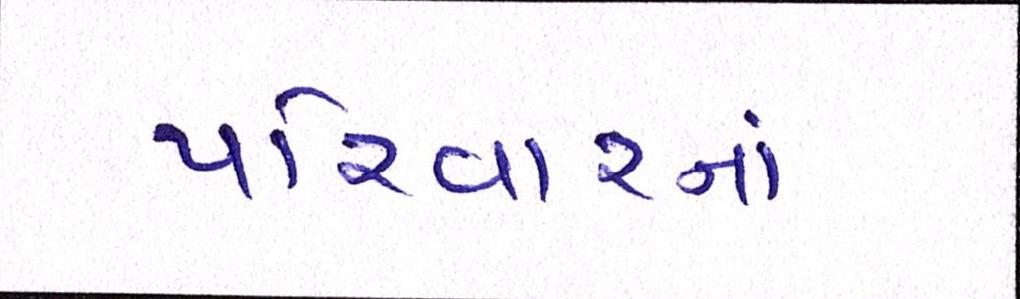 પરિવારનાં